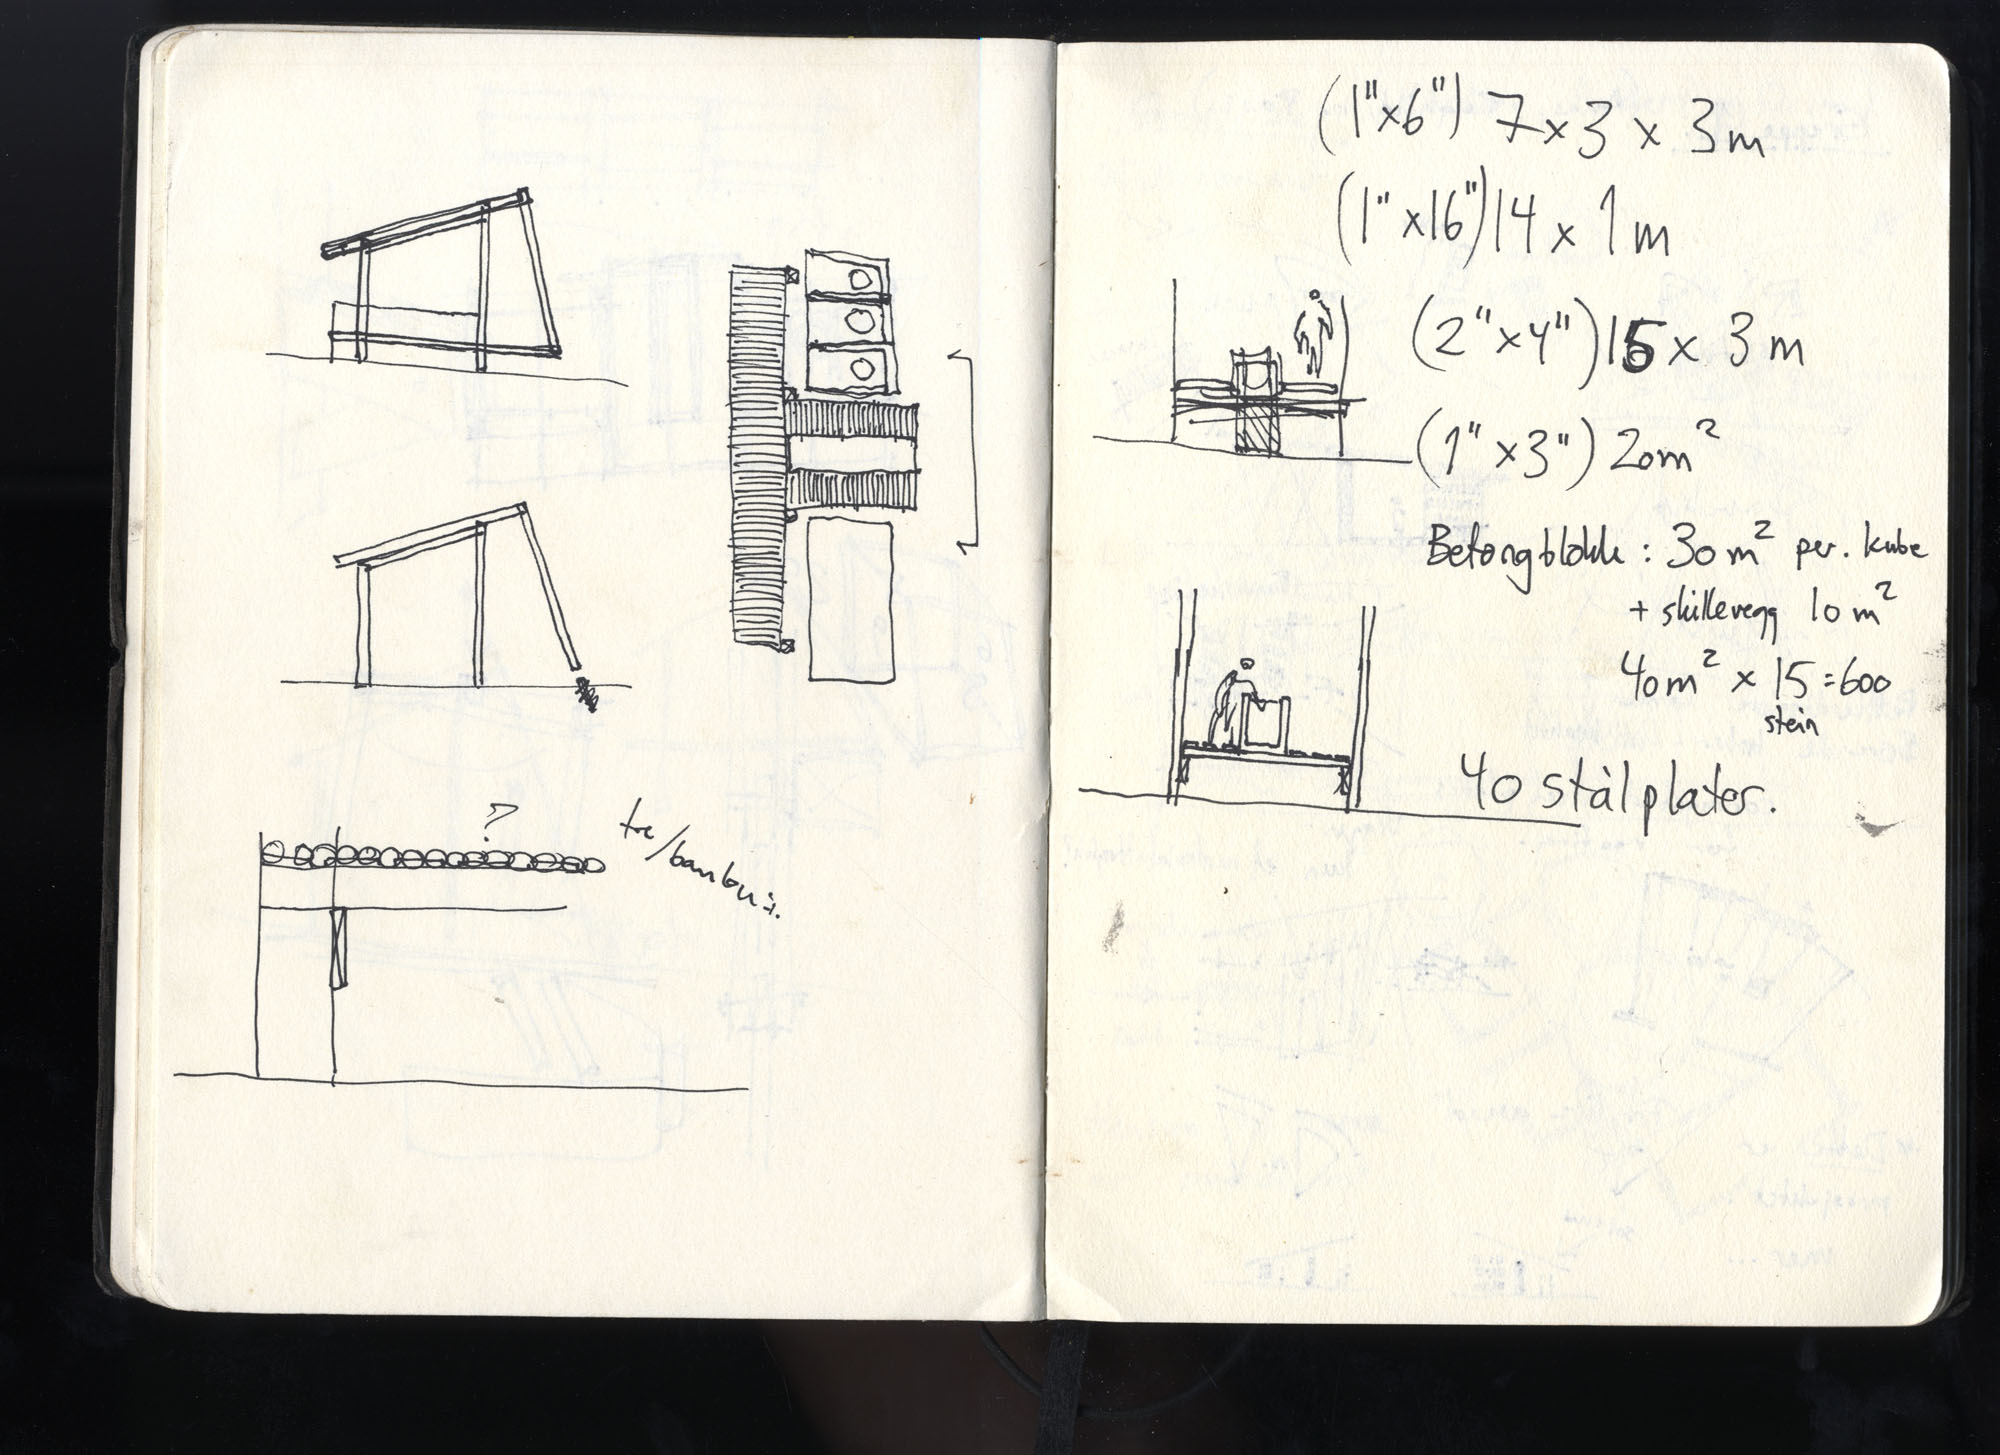 ?
tre/bambus.
(1"x6") 7 x 3 x 3m
(1" x16") 14 x 1m
(2"x4") 15 x 3m
(1" x3") 20m²
Betongblokk : 30m² per. kube
+ skillevegg 10m²
40m² x 15 = 600
stein
40 stålplater.